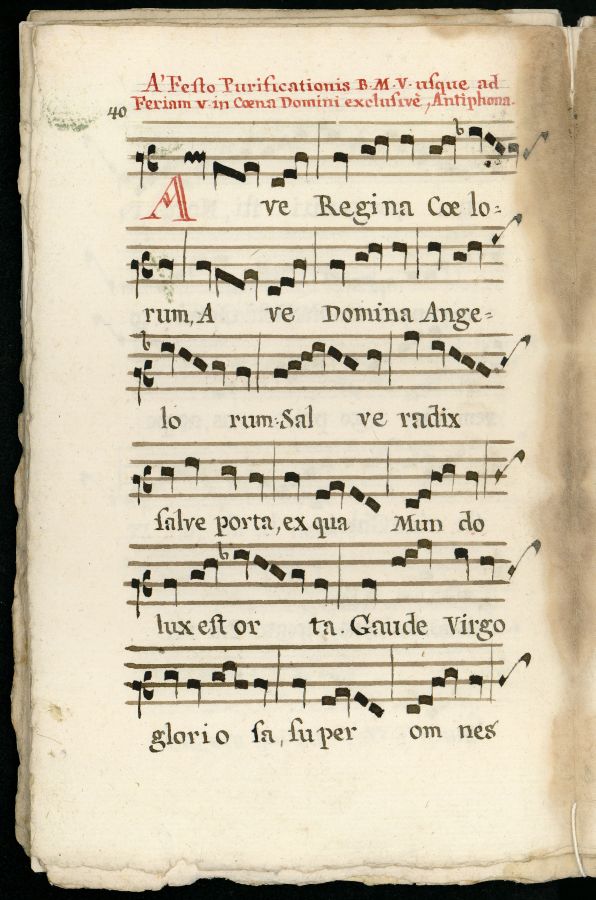 A' Festo Purificationis B·M·V· usque ad
40 Feriam v in Cœna Domini exclusivè, Antiphona.
A ve Regina Cœ lo-
rum, A ve Domina Ange-
lo rum. Sal ve radix
salve porta, ex qua Mun do
lux est or ta. Gaude Virgo
glorio sa, super om nes